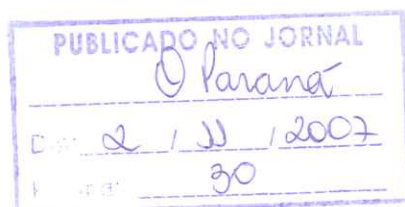 PUBLICADO NO JORNAL
O Paraná
2 / 11 / 2007
30